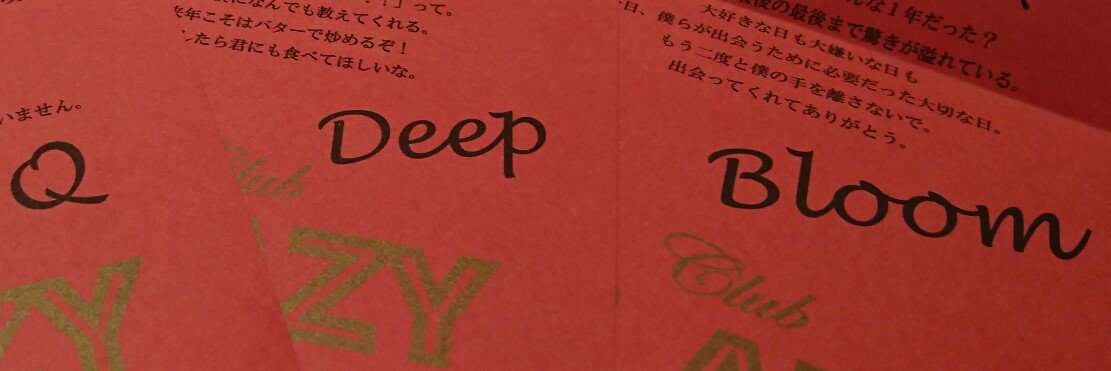 いません。
Q
ZY
！」って。
になんでも教えてくれる。
来年こそはバターで炒めるぞ！
したら君にも食べてほしいな。
Deep
Club
ZY
んな１年だった？
最後の最後まで驚きが溢れている。
大好きな日も大嫌いな日も
日、僕らが出会うために必要だった大切な日。
もう二度と僕の手を離さないで。
出会ってくれてありがとう。
Bloom
Club